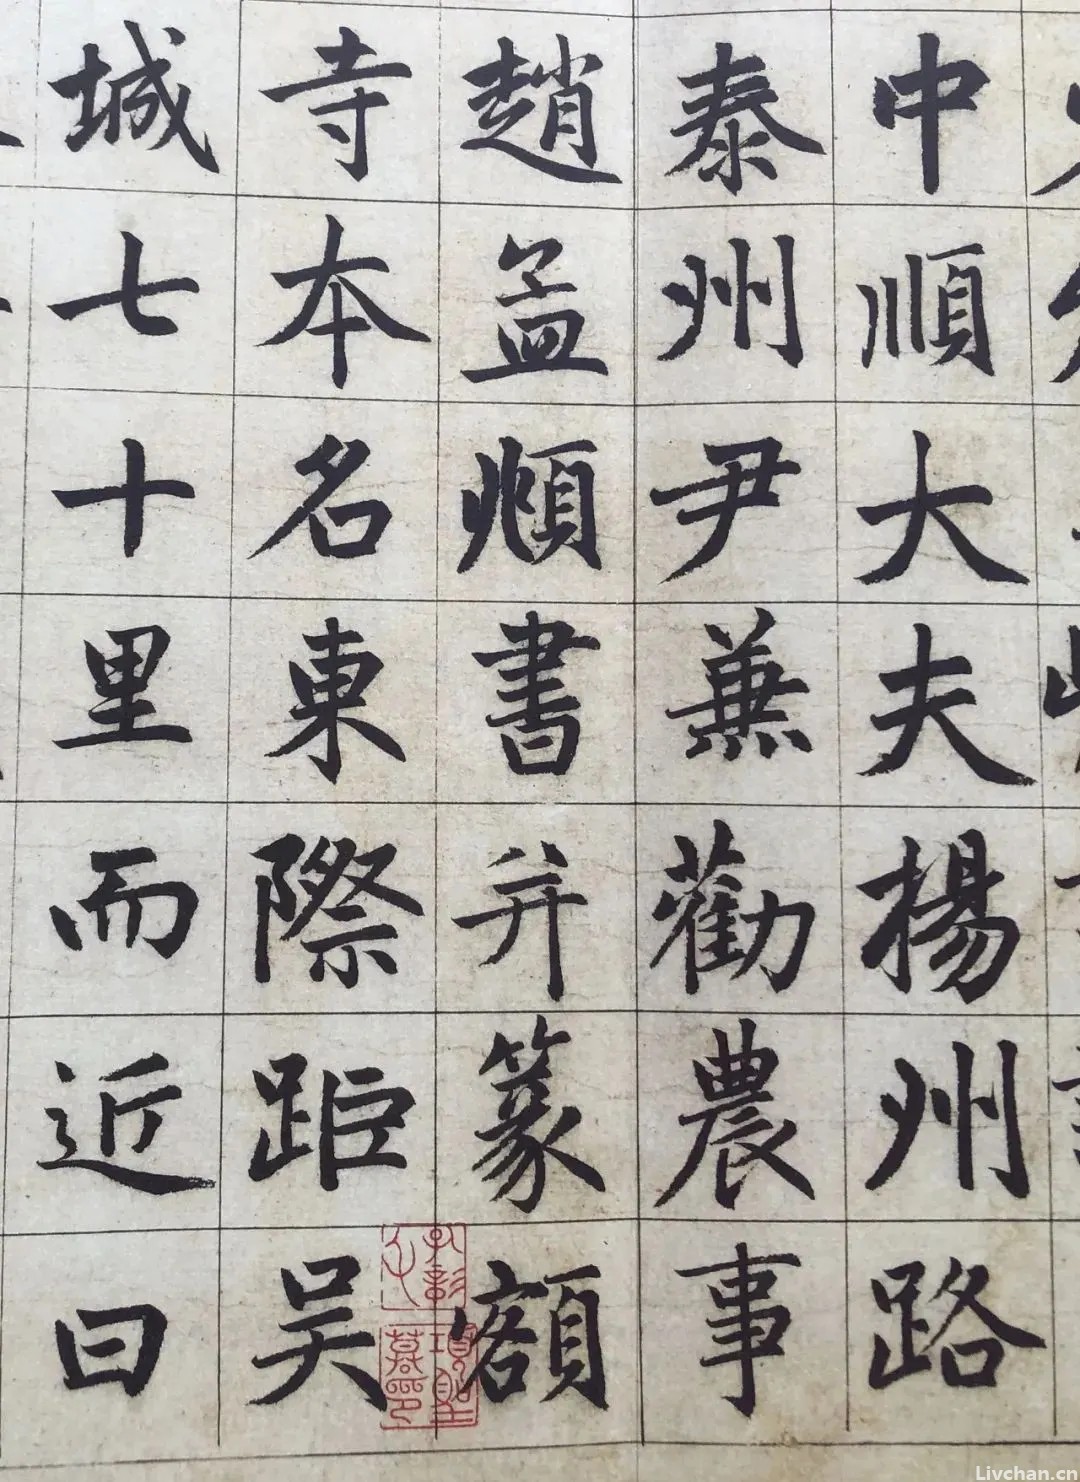 中順大夫楊州路
泰州尹兼勸農事
趙孟頫書并篆額
寺本名東際距吴
城七十里而近曰
Livchan.cn